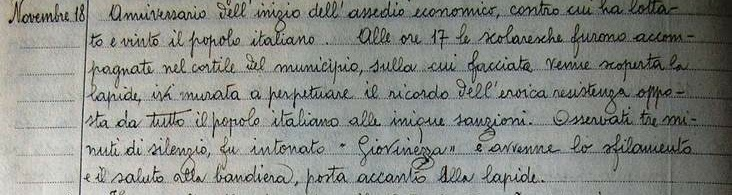 Novembre 18 Anniversario dell'inizio dell'assedio economico, contro cui ha lotta-
to e vinto il popolo italiano. Alle ore 17 le scolaresche furono accom-
pagnate nel cortile del municipio, sulla cui facciata venne scoperta la
lapide, ivi murata a perpetuare il ricordo dell'eroica resistenza oppo-
sta da tutto il popolo italiano alle inique sanzioni. Osservati tre mi-
nuti di silenzio, fu intonato "Giovinezza" e avvenne lo sfilamento
e il saluto alla bandiera, posta accanto alla lapide.